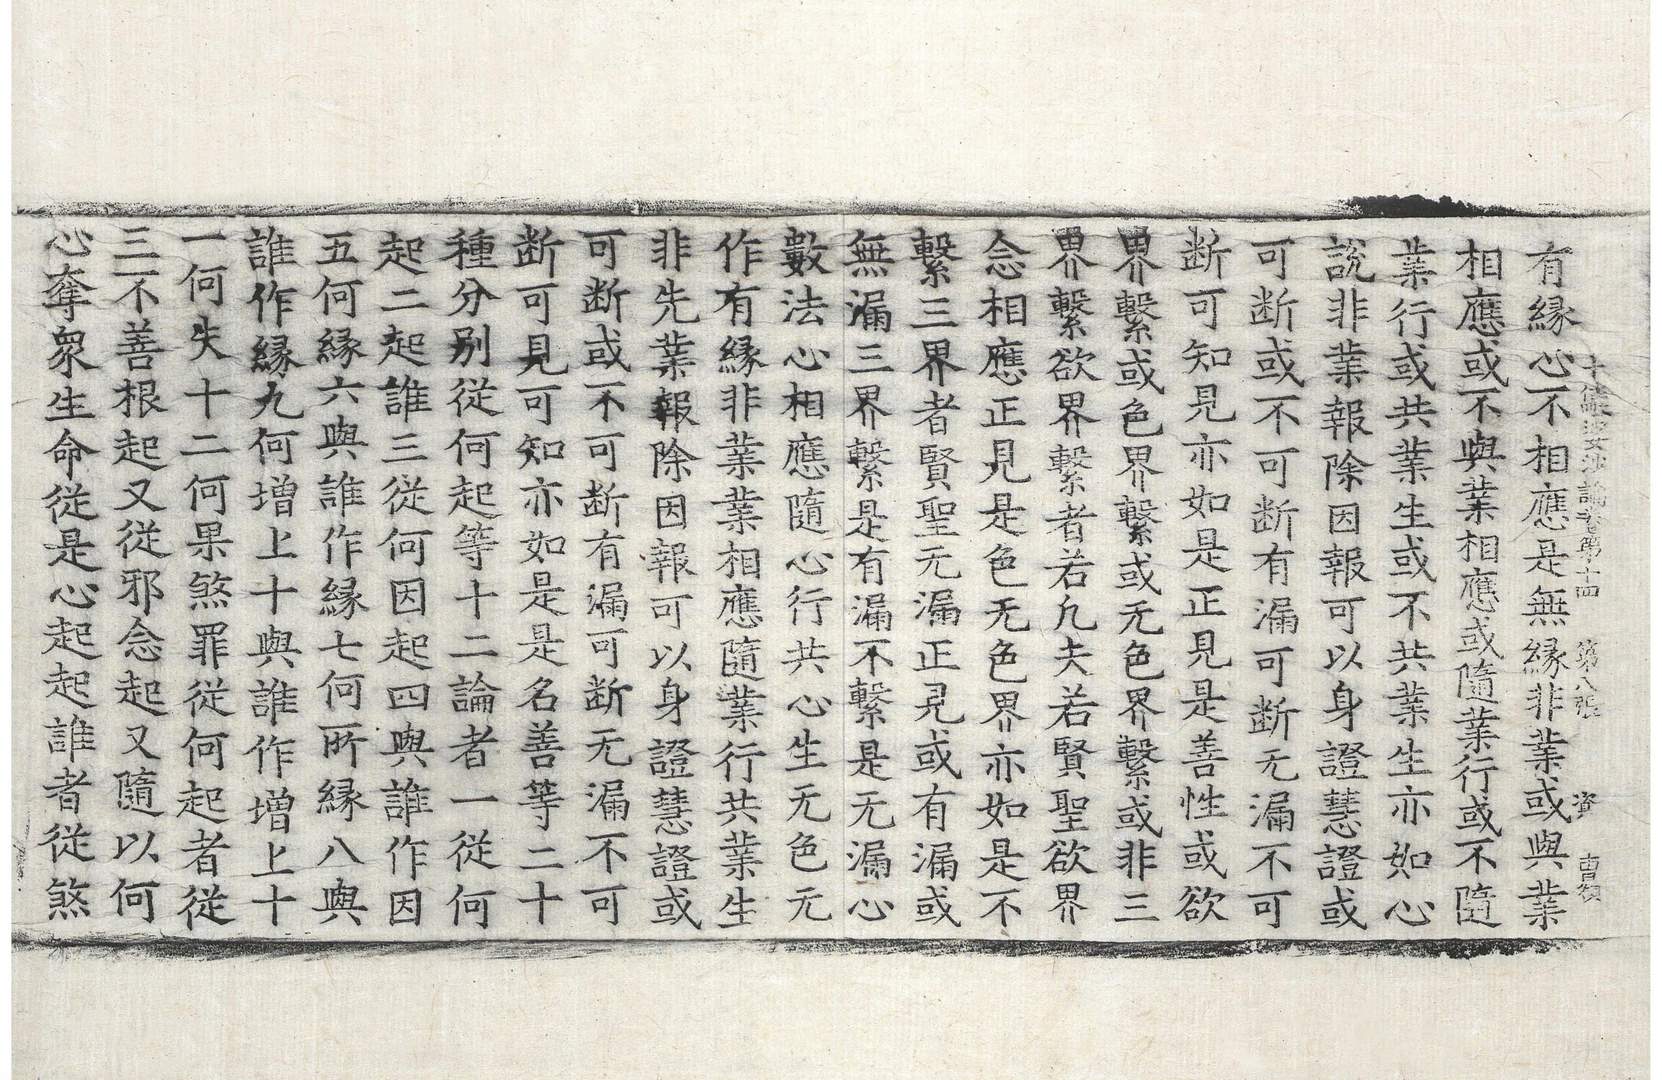 十住毗婆沙論卷第十四 第八張 資
有縁心不相應是無縁非業或與業
相應或不與業相應或隨業行或不隨
業行或共業生或不共業生亦如心
說非業報除因報可以身證慧證或
可断或不可断有漏可断无漏不可
断可知見亦如是正見是善性或欲
界繫或色界繫或无色界繫或非三
界繫欲界繫者若凢夫若賢聖欲界
念相應正見是色无色界亦如是不
繫三界者賢聖无漏正見或有漏或
無漏三界繫是有漏不繫是无漏心
數法心相應隨心行共心生无色无
作有縁非業業相應隨業行共業生
非先業報除因報可以身證慧證或
可断或不可断有漏可断无漏不可
断可見可知亦如是是名善等二十
種分别從何起等十二論者一從何
起二起誰三從何因起四與誰作因
五何縁六與誰作縁七何所縁八與
誰作縁九何増上十與誰作増上十
一何失十二何果煞罪從何起者從
三不善根起又從邪念起又隨以何
心奪衆生命從是心起起誰者從煞